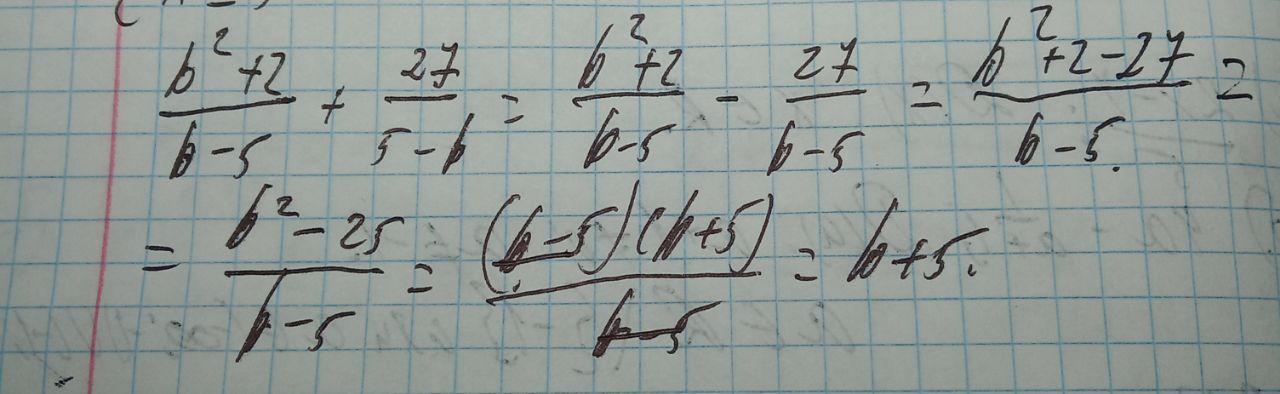 \frac{b^2+2}{b-5} + \frac{27}{5-b} = \frac{b^2+2}{b-5} - \frac{27}{b-5} = \frac{b^2+2-27}{b-5} =
= \frac{b^2-25}{b-5} = \frac{(b-5)(b+5)}{b-5} = b+5.